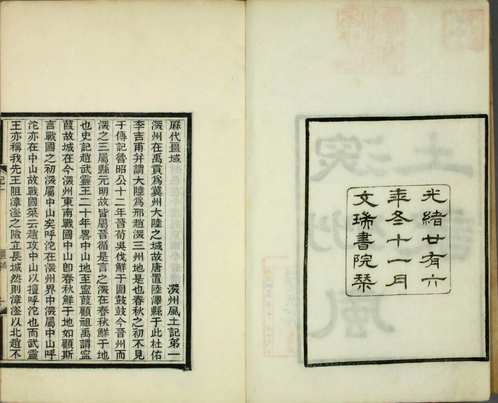 光緒廿有六
秊冬十一月
文瑞書院槧
歷代畺域　深州風土記第一
深州在禹貢爲冀州大陸之域故唐置陸澤縣于此杜佑
李吉甫并謂大陸爲邢趙深三州地是也春秋之初不見
于傳記魯昭公十二年晉荀吳伐鮮于圍鼓鼓今晉州而
深之三屬縣元明故皆屬晉循是言之深在春秋鮮于地
也史記趙武靈王二十年畧中山地至寧葭顧祖禹謂寧
葭故城在今深州東南戰國中山卽春秋鮮于地如顧斯
言戰國之初深屬中山矣呼沱在深州界中深屬中山呼
沱亦在中山故戰國策云趙攻中山以擅呼沱也而武靈
王亦稱我先王阻漳滏之險立長城然則漳滏以北趙不